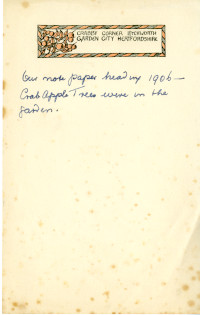 CRABBY CORNER LETCHWORTH
GARDEN CITY HERTFORDSHIRE
Our note paper heading 1906 —
Crab Apple Trees were in the
garden.